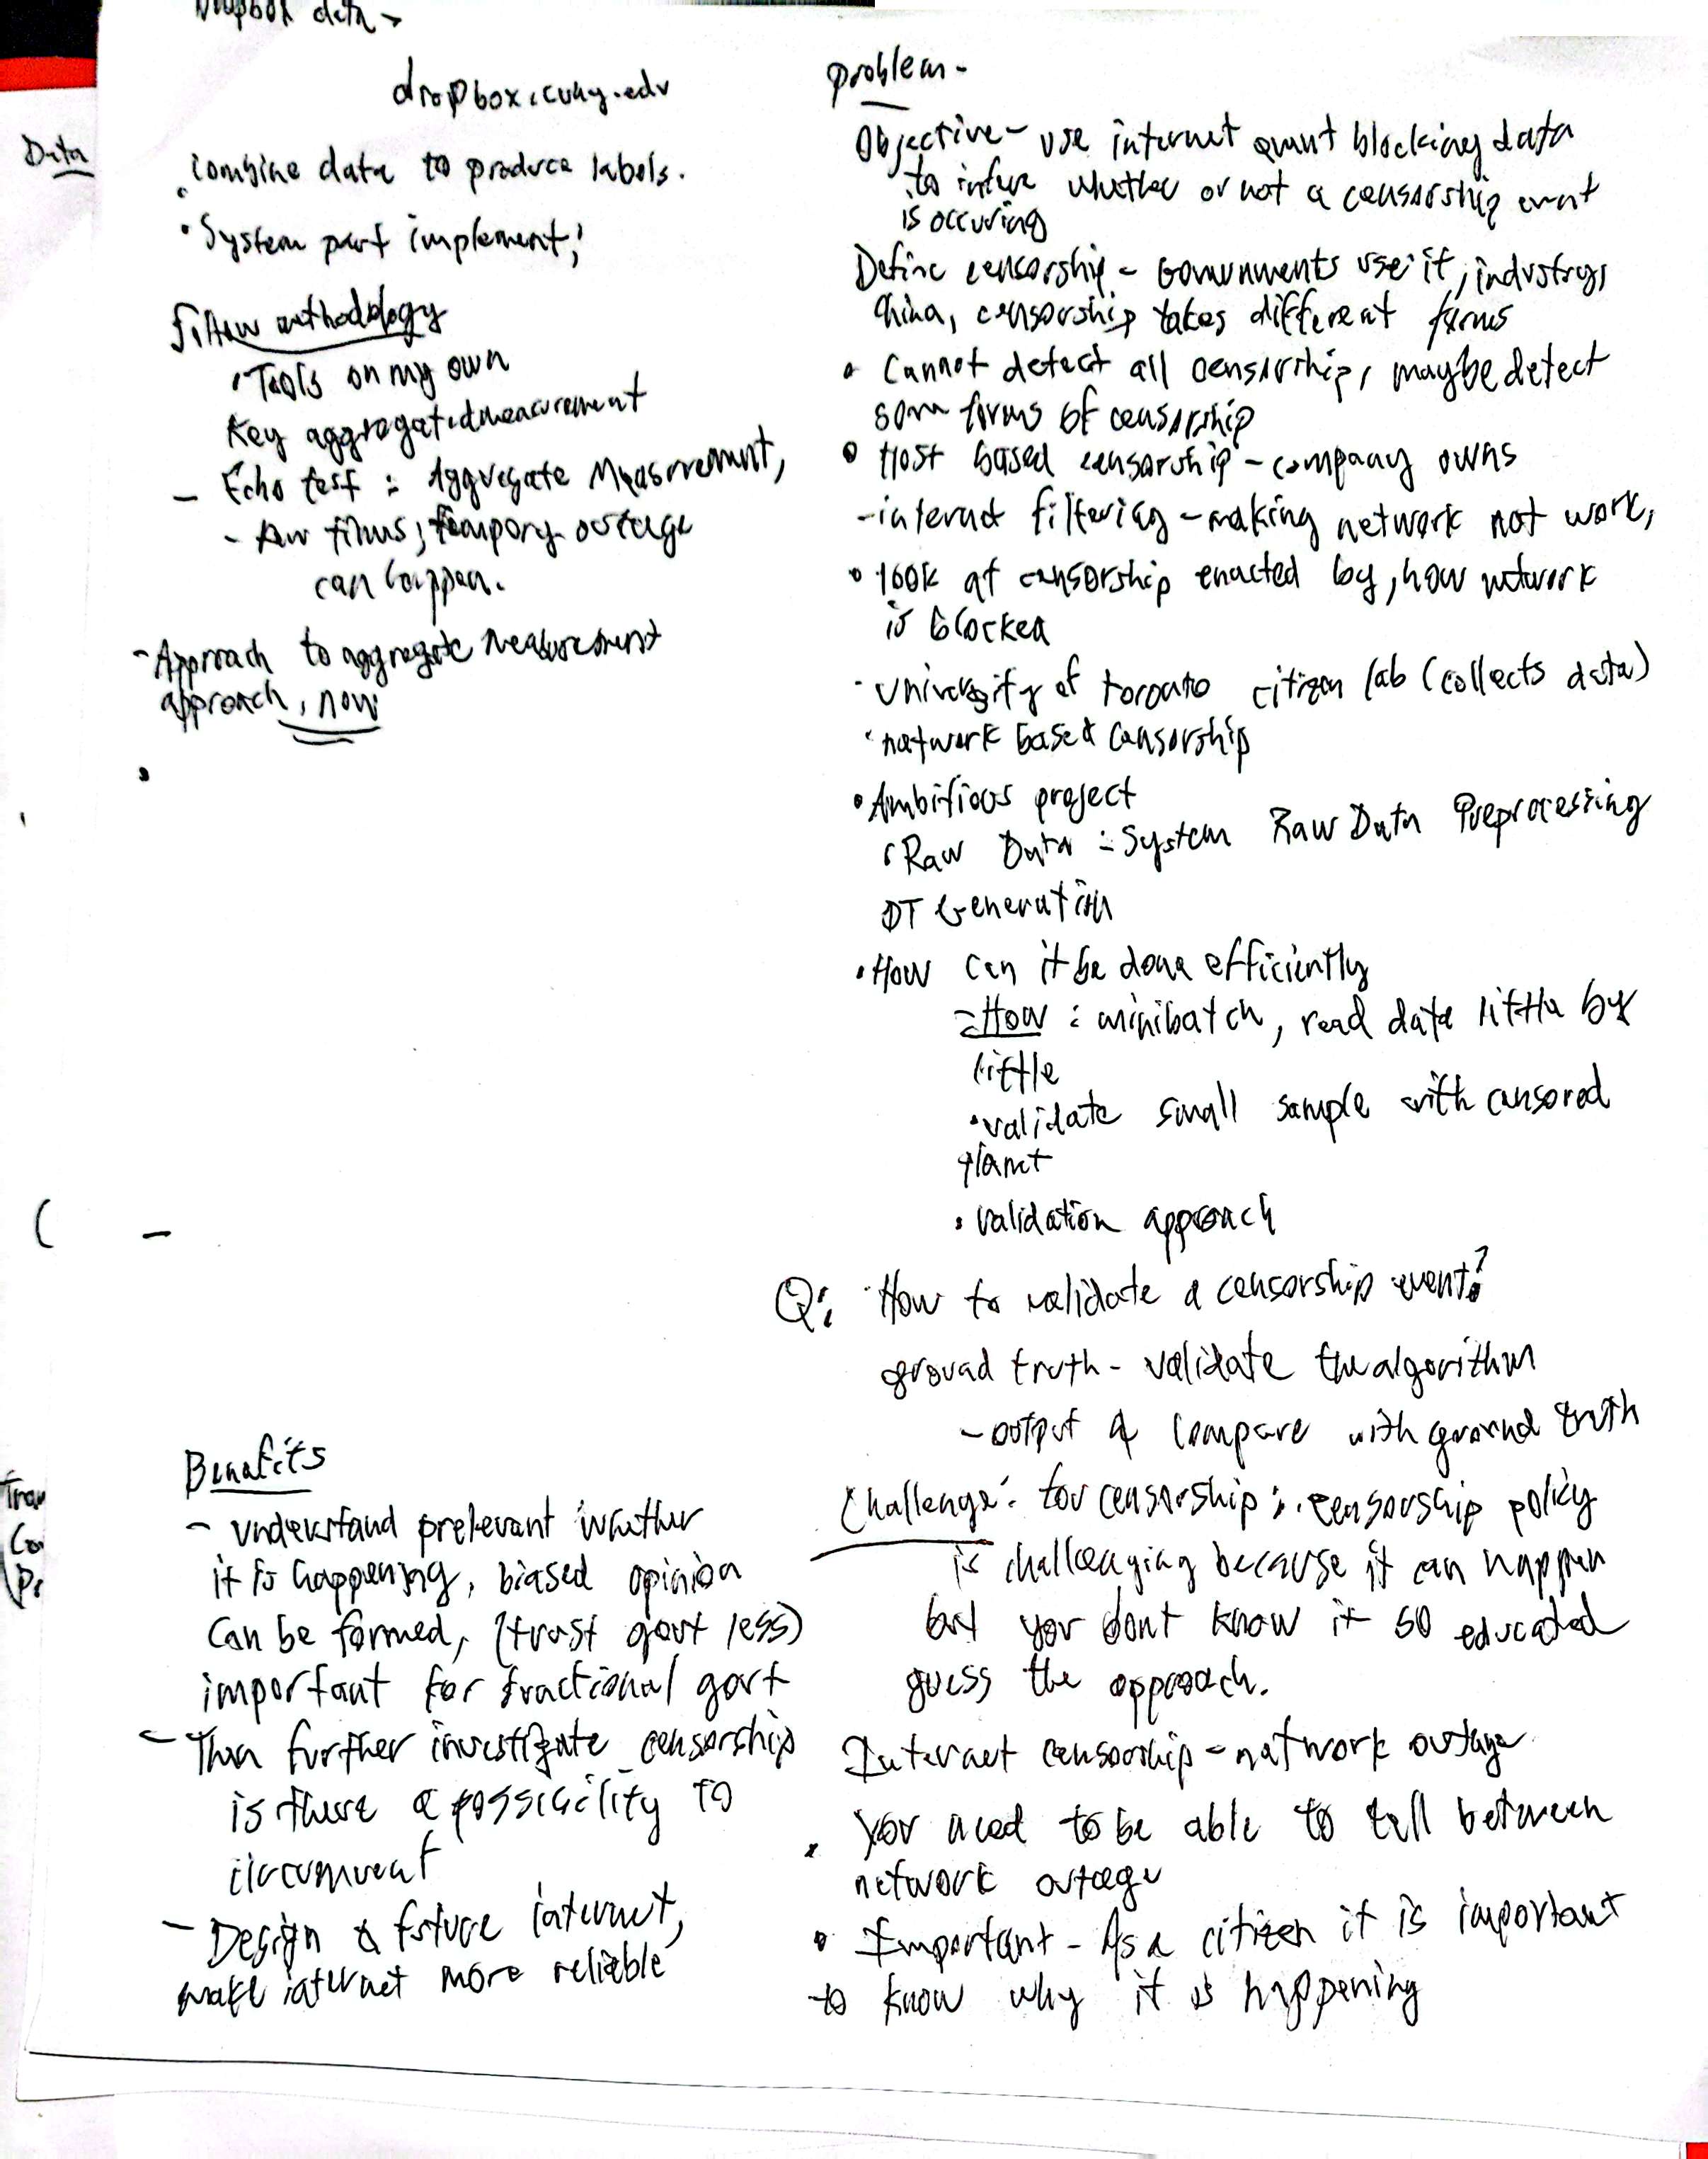 Dropbox data →
dropbox.cuny.edu
Data
combine data to produce labels.
• System part implement;
methodology
• Tools on my own
Key aggregated measurement
- Echo test : Aggregate Measurement,
- few times; tempory outage
can happen.
- Approach to aggregate measurement
approach, now
(
-
Benefits
- understand prelevant whether
it is happening, biased opinion
Can be formed, (trust govt less)
important for fractional govt
- Then further investigate censorship
is there a possibility to
circumvent
- Design a future internet,
make internet more reliable
Tran
Co
Pr
problem -
Objective - use internet event blocking data
to infure whether or not a censorship event
is occuring
Define censorship - Governments use it, industry,
China, censorship takes different forms
• Cannot detect all censorship, maybe detect
some forms of censorship
• Host based censorship - company owns
- internet filtering - making network not work,
• look at censorship enacted by, how network
is blocked
• University of toronto citizen lab (collects data)
• network based censorship
• Ambitious project
• Raw Data - System Raw Data Preprocessing
DT Generation
• How can it be done efficiently
- How : minibatch, read data little by
little
• validate small sample with censored
planet
• validation approach
Q: How to validate a censorship event?
ground truth - validate the algorithm
- output & compare with ground truth
Challenge: for censorship : censorship policy
is challenging because it can happen
but you dont know it so educated
guess the approach.
Internet censorship - network outage
• you need to be able to tell between
network outage
• Important - As a citizen it is important
to know why it is happening